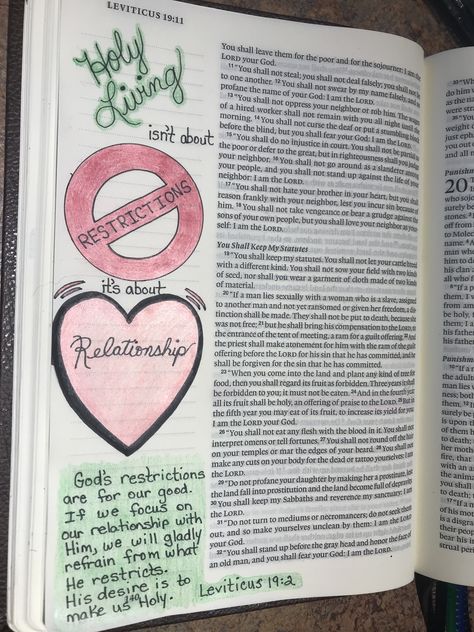 LEVITICUS 19:11
Holy
Living
isn't about
RESTRICTIONS
it's about
Relationship
God's restrictions
are for our good.
If we focus on
our relationship with
Him, we will gladly
refrain from what
He restricts.
His desire is to
make us Holy.
Leviticus 19:2
140
You shall leave them for the poor and for the sojourner: I am the
LORD your God.
11 "You shall not steal; you shall not deal falsely; you shall not lie
to one another. 12 You shall not swear by my name falsely, and so
profane the name of your God: I am the LORD.
13 "You shall not oppress your neighbor or rob him. The wages
of a hired worker shall not remain with you all night until the
morning. 14 You shall not curse the deaf or put a stumbling block
before the blind, but you shall fear your God: I am the LORD.
15 "You shall do no injustice in court. You shall not be partial to
the poor or defer to the great, but in righteousness shall you judge
your neighbor. 16 You shall not go around as a slanderer among
your people, and you shall not stand up against the life of your
neighbor: I am the LORD.
17 "You shall not hate your brother in your heart, but you shall
reason frankly with your neighbor, lest you incur sin because of
him. 18 You shall not take vengeance or bear a grudge against the
sons of your own people, but you shall love your neighbor as your-
self: I am the LORD.
You Shall Keep My Statutes
19 "You shall keep my statutes. You shall not let your cattle breed
with a different kind. You shall not sow your field with two kinds
of seed, nor shall you wear a garment of cloth made of two kinds
of material.
20 "If a man lies sexually with a woman who is a slave, assigned
to another man and not yet ransomed or given her freedom, a dis-
tinction shall be made. They shall not be put to death, because she
was not free; 21 but he shall bring his compensation to the LORD, to
the entrance of the tent of meeting, a ram for a guilt offering. 22 And
the priest shall make atonement for him with the ram of the guilt
offering before the LORD for his sin that he has committed, and he
shall be forgiven for the sin that he has committed.
23 "When you come into the land and plant any kind of tree for
food, then you shall regard its fruit as forbidden. Three years it shall
be forbidden to you; it must not be eaten. 24 And in the fourth year
all its fruit shall be holy, an offering of praise to the LORD. 25 But in
the fifth year you may eat of its fruit, to increase its yield for you:
I am the LORD your God.
26 "You shall not eat any flesh with the blood in it. You shall not
interpret omens or tell fortunes. 27 You shall not round off the hair
on your temples or mar the edges of your beard. 28 You shall not
make any cuts on your body for the dead or tattoo yourselves: I am
the LORD.
29 "Do not profane your daughter by making her a prostitute, lest
the land fall into prostitution and the land become full of depravity.
30 You shall keep my Sabbaths and reverence my sanctuary: I am
the LORD.
31 "Do not turn to mediums or necromancers; do not seek them
out, and so make yourselves unclean by them: I am the LORD
your God.
32 "You shall stand up before the gray head and honor the face of
an old man, and you shall fear your God: I am the LORD.
20